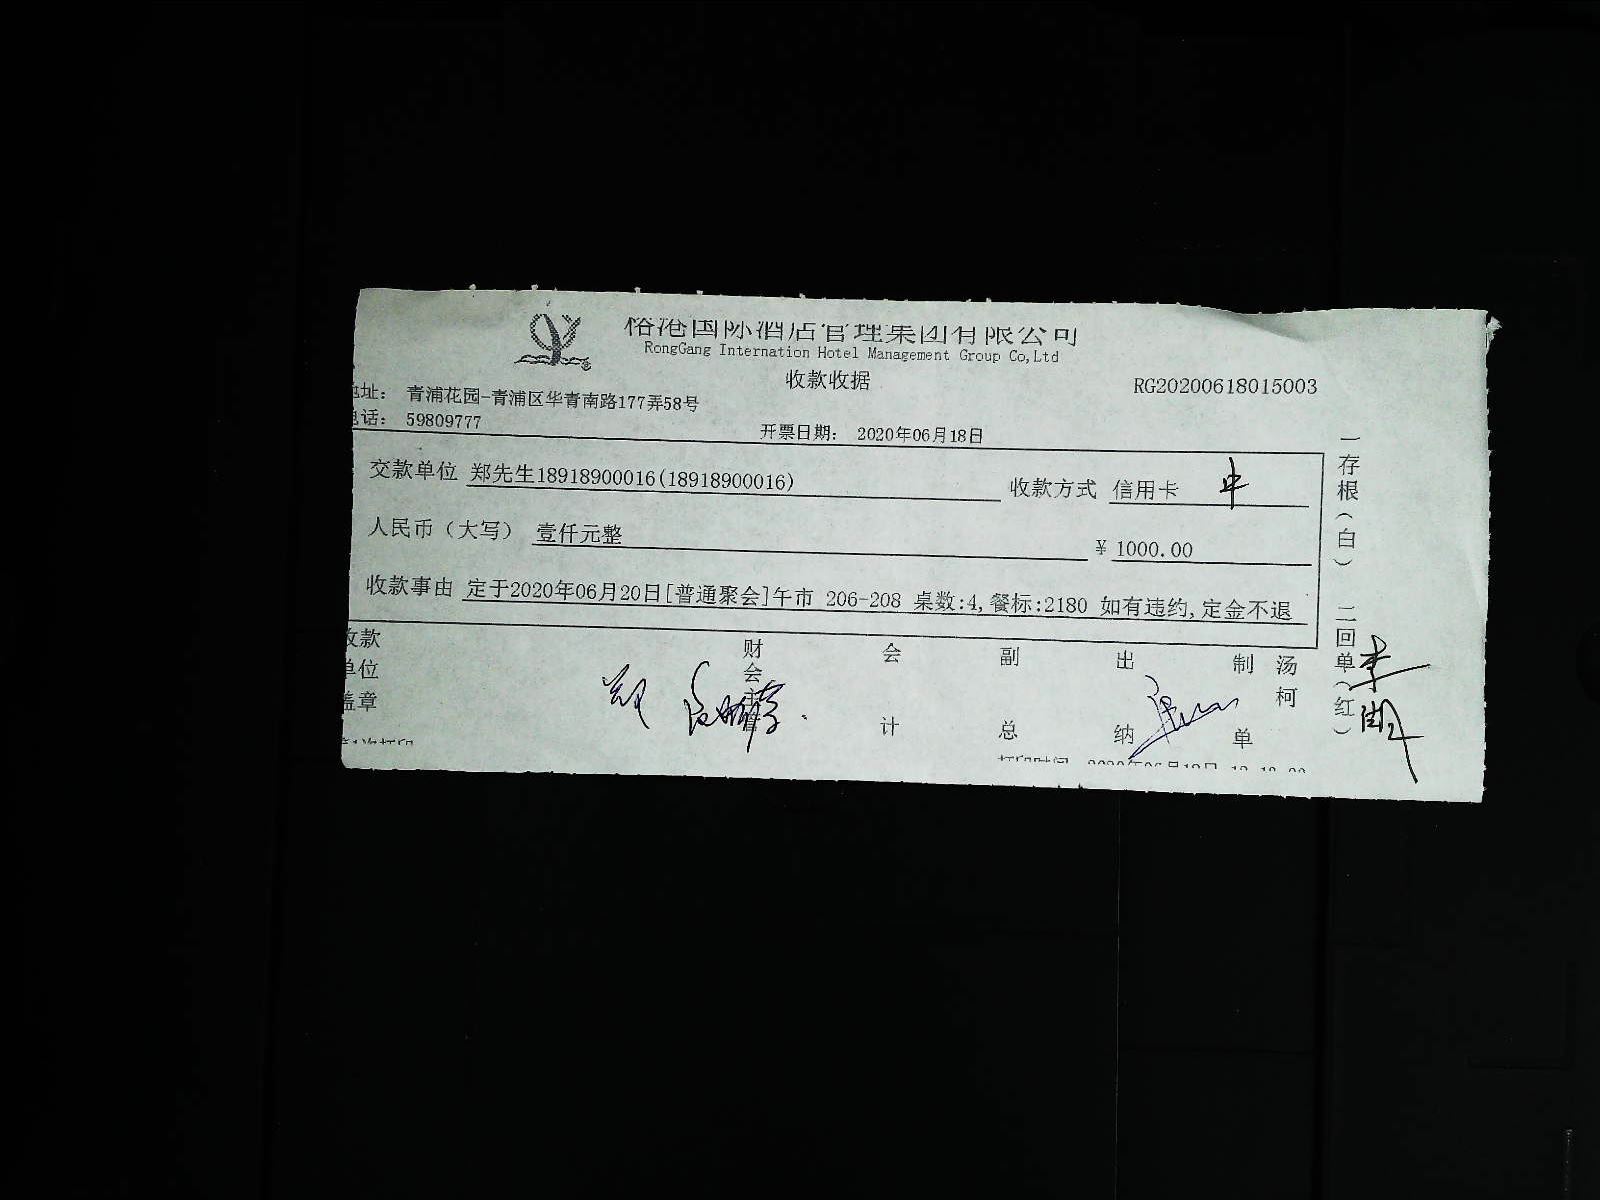 国际酒店管理集团有限公司
RongGang Internation Hotel Management Group Co,Ltd
收款收据
RG20200618015003
地址： 青浦花园-青浦区华青南路177弄58号
电话： 59809777
开票日期： 2020年06月18日
交款单位 郑先生18918900016(18918900016) 收款方式 信用卡
人民币（大写） 壹仟元整 ￥ 1000.00
收款事由 定于2020年06月20日[普通聚会]午市 206-208 桌数:4,餐标:2180 如有违约,定金不退
收款单位盖章
财会主管
会计
副总
出纳
制单
汤柯
一存根（白） 二回单（红）